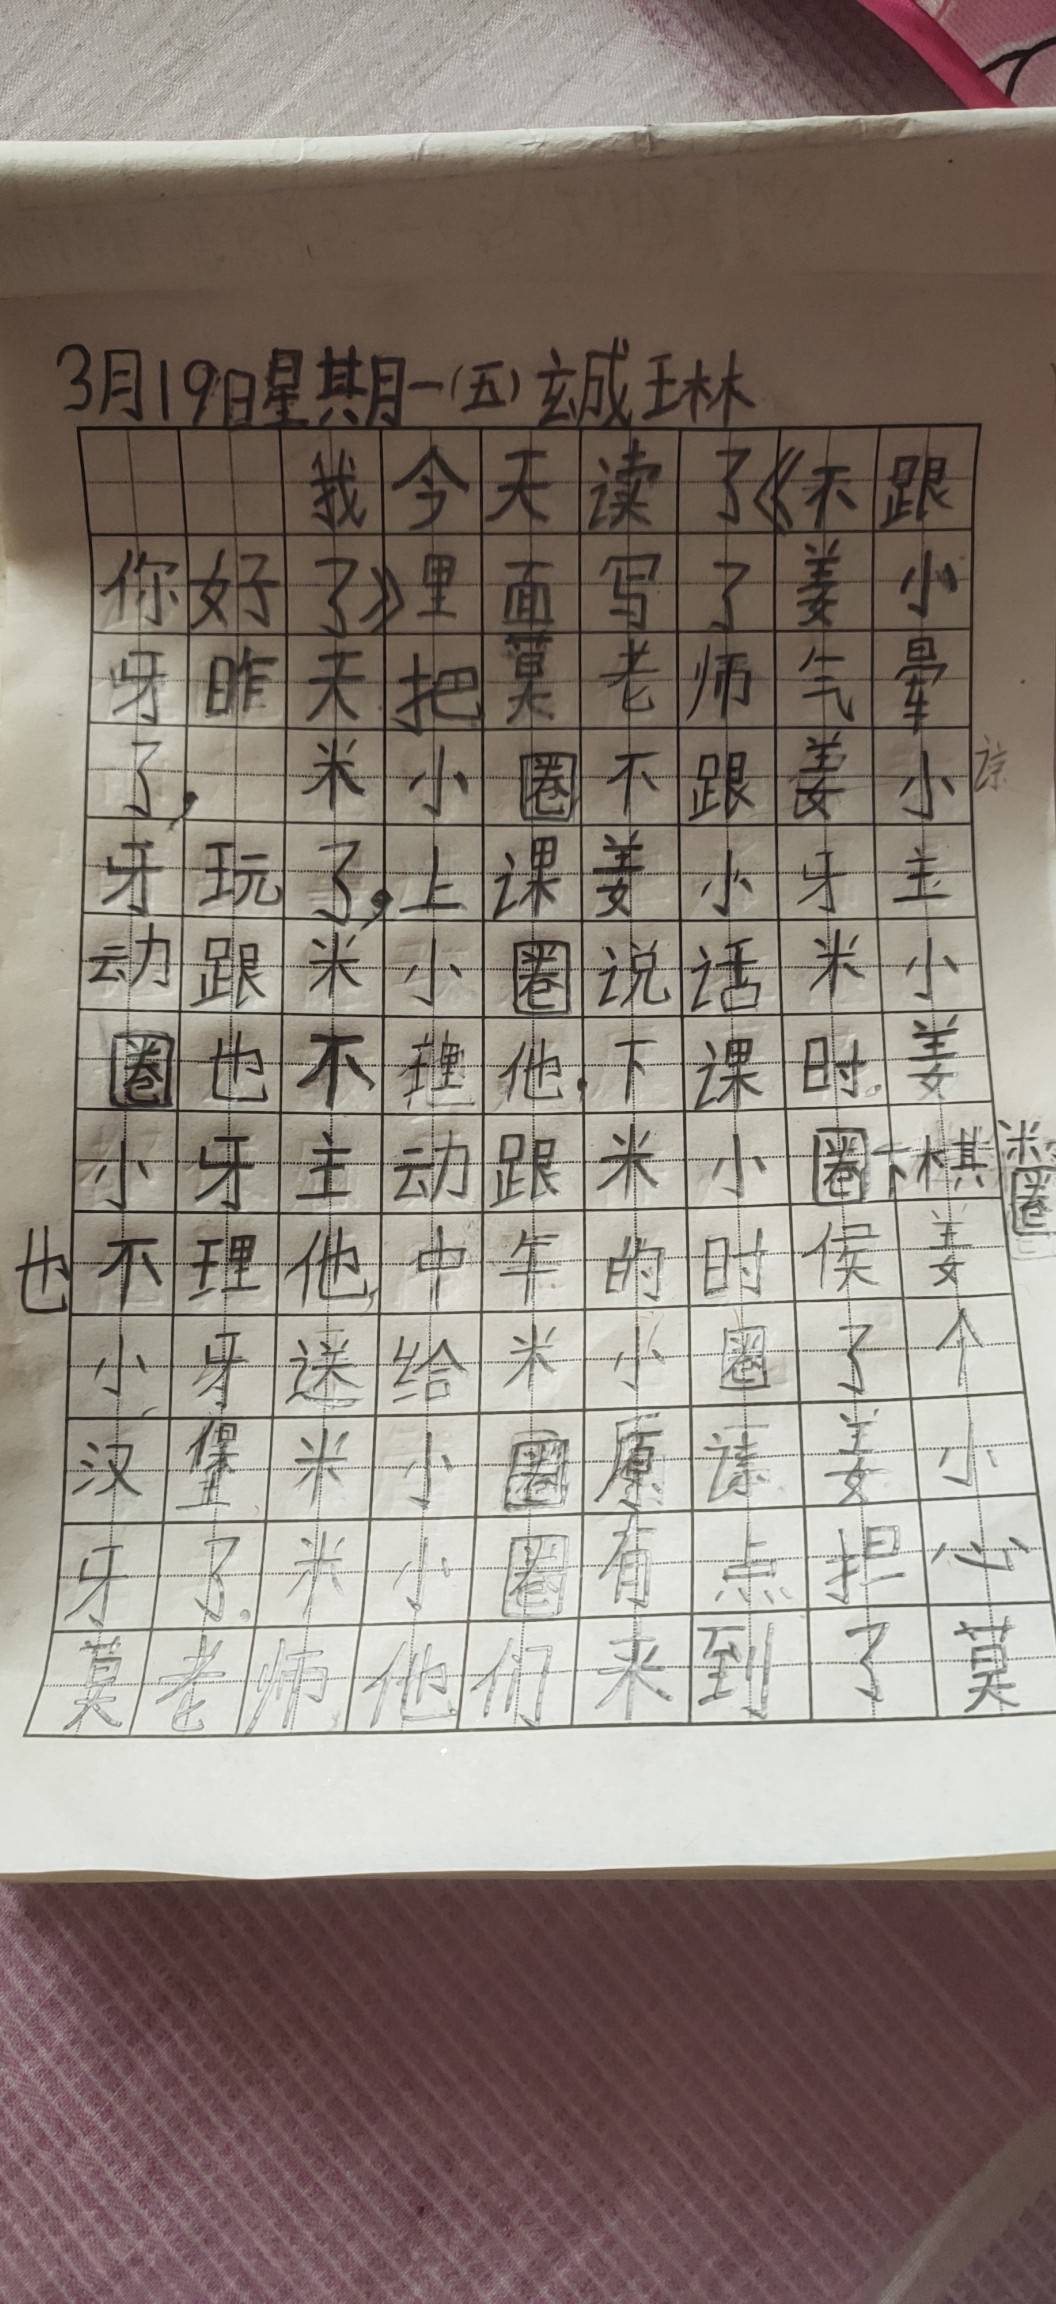 3月19日星期一(五)玄成王林
我今天读了《不跟
你好了》里面写了姜小
牙昨天把莫老师气晕
了，米小圈不跟姜小
牙玩了，上课姜小牙主
动跟米小圈说话米小
圈也不理他.下课时。姜
小牙主动跟米小圈下棋米圈
也不理他中午的时侯姜
小牙送给米小圈了个
汉堡米小圈原谅姜小
牙了.米小圈有点担心
莫老师他们来到了莫